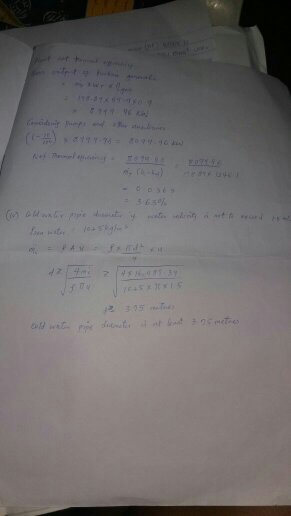 Plant net thermal efficiency
Gross output of turbine generator
= ṁ₂ × W_T × η_gen
= 178.89 × 55.9 × 0.9
= 8999.96 kW
Considering pumps and other auxiliaries
(1 - 10/100) × 8999.96 = 8099.96 kW
Net thermal efficiency = 8099.96 / ṁ₂(h₁-h₄) = 8099.96
= 0.0363
= 3.63%
(iv) Cold water pipe diameter if water velocity is not to exceed 1.5 m/s
ρ sea water = 1025 kg/m³
ṁc = ρAu = ρ × πd²/4 × u
d ≥ √(4ṁ/ρπu) ≥ √(4 × / 1025 × π × 1.5)
d ≥ 3.75 metres
Cold water pipe diameter is at least 3.75 metres